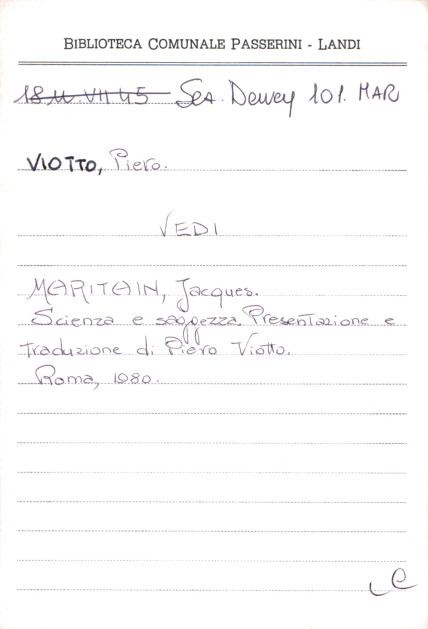 BIBLIOTECA COMUNALE PASSERINI - LANDI
18 M. VII 45 Sca. Dewey 101. MAR
VIOTTO, Piero.
VEDI
MARITAIN, Jacques.
Scienza e saggezza. Presentazione e
traduzione di Piero Viotto.
Roma, 1980.